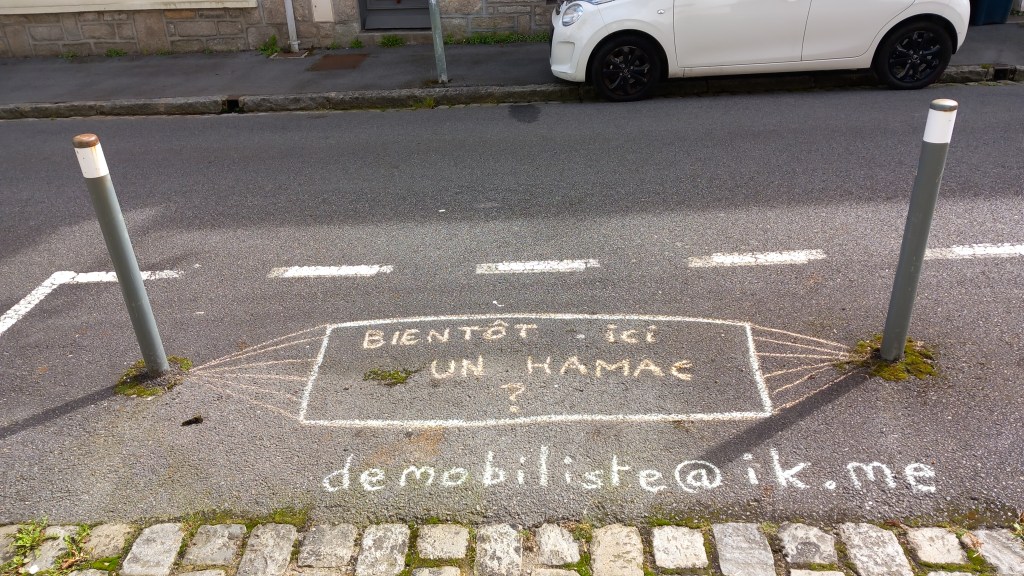 BIENTÔT ici
UN HAMAC
?
demobiliste@ik.me